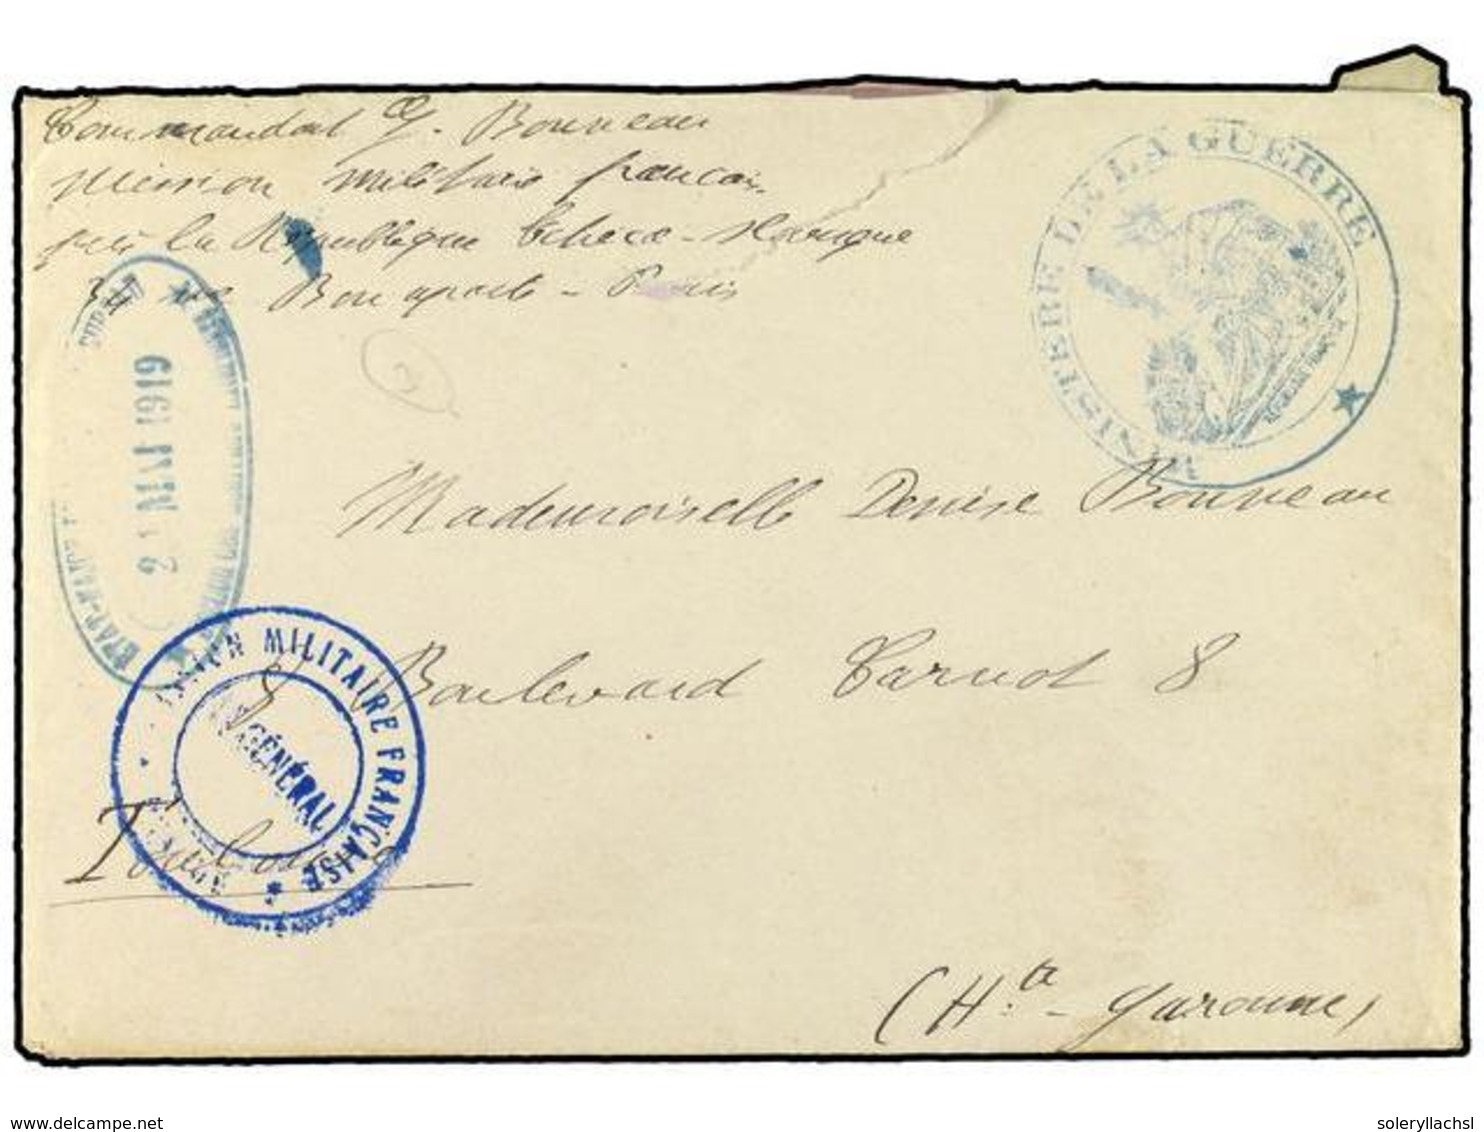 Commandant G. Bonneau
Mission militaire français
près la République tchéco-slovaque
34 rue Bonaparte - Paris
MINISTÈRE DE LA GUERRE
2 MAI 1919
Mademoiselle Denise Bonneau
8 Boulevard Carnot 8
MISSION MILITAIRE FRANÇAISE
GÉNÉRAL
Toulouse
(Hte - Garonne)
delcampe.net
soleryllachsl